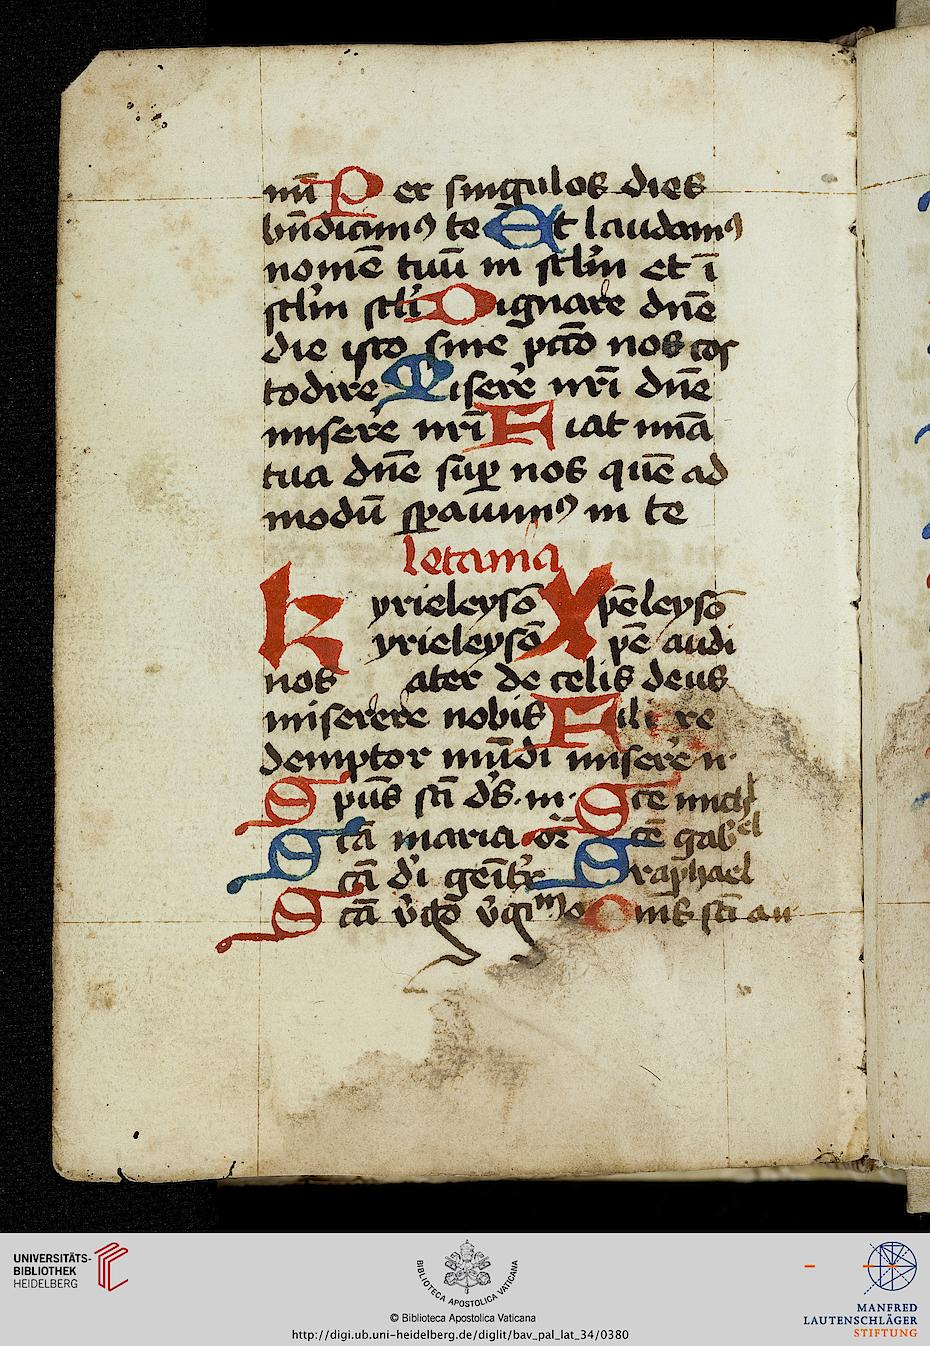 nū Per singulos dies
bn̄dicimꝰ te Et laudamꝰ
nomē tuū in sclm̄ et ī
sclm̄ scli Dignare dn̄e
die isto sine pctō nos cos
todire Miserēe nrī dn̄e
miserēe nrī Fiat mīa
tua dn̄e suꝑ nos quē ad
modū speauimꝰ in te
letania
Kyrieleysō Xpēleysō
kyrieleysō Xpē audi
nos ater de celis deus
miserere nobis Fili re
demptor mūdi miserēe n·
Spūs scī ds̄·m·n· Sctē mich
Sctā maria or̄ Sctē gabel
Sctā dī genitx S raphael
Sctā v̄go v̄gīm o Omēs scī an
UNIVERSITÄTS-
BIBLIOTHEK
HEIDELBERG
BIBLIOTECA APOSTOLICA VATICANA
© Biblioteca Apostolica Vaticana
http://digi.ub.uni-heidelberg.de/diglit/bav_pal_lat_34/0380
MANFRED
LAUTENSCHLÄGER
STIFTUNG